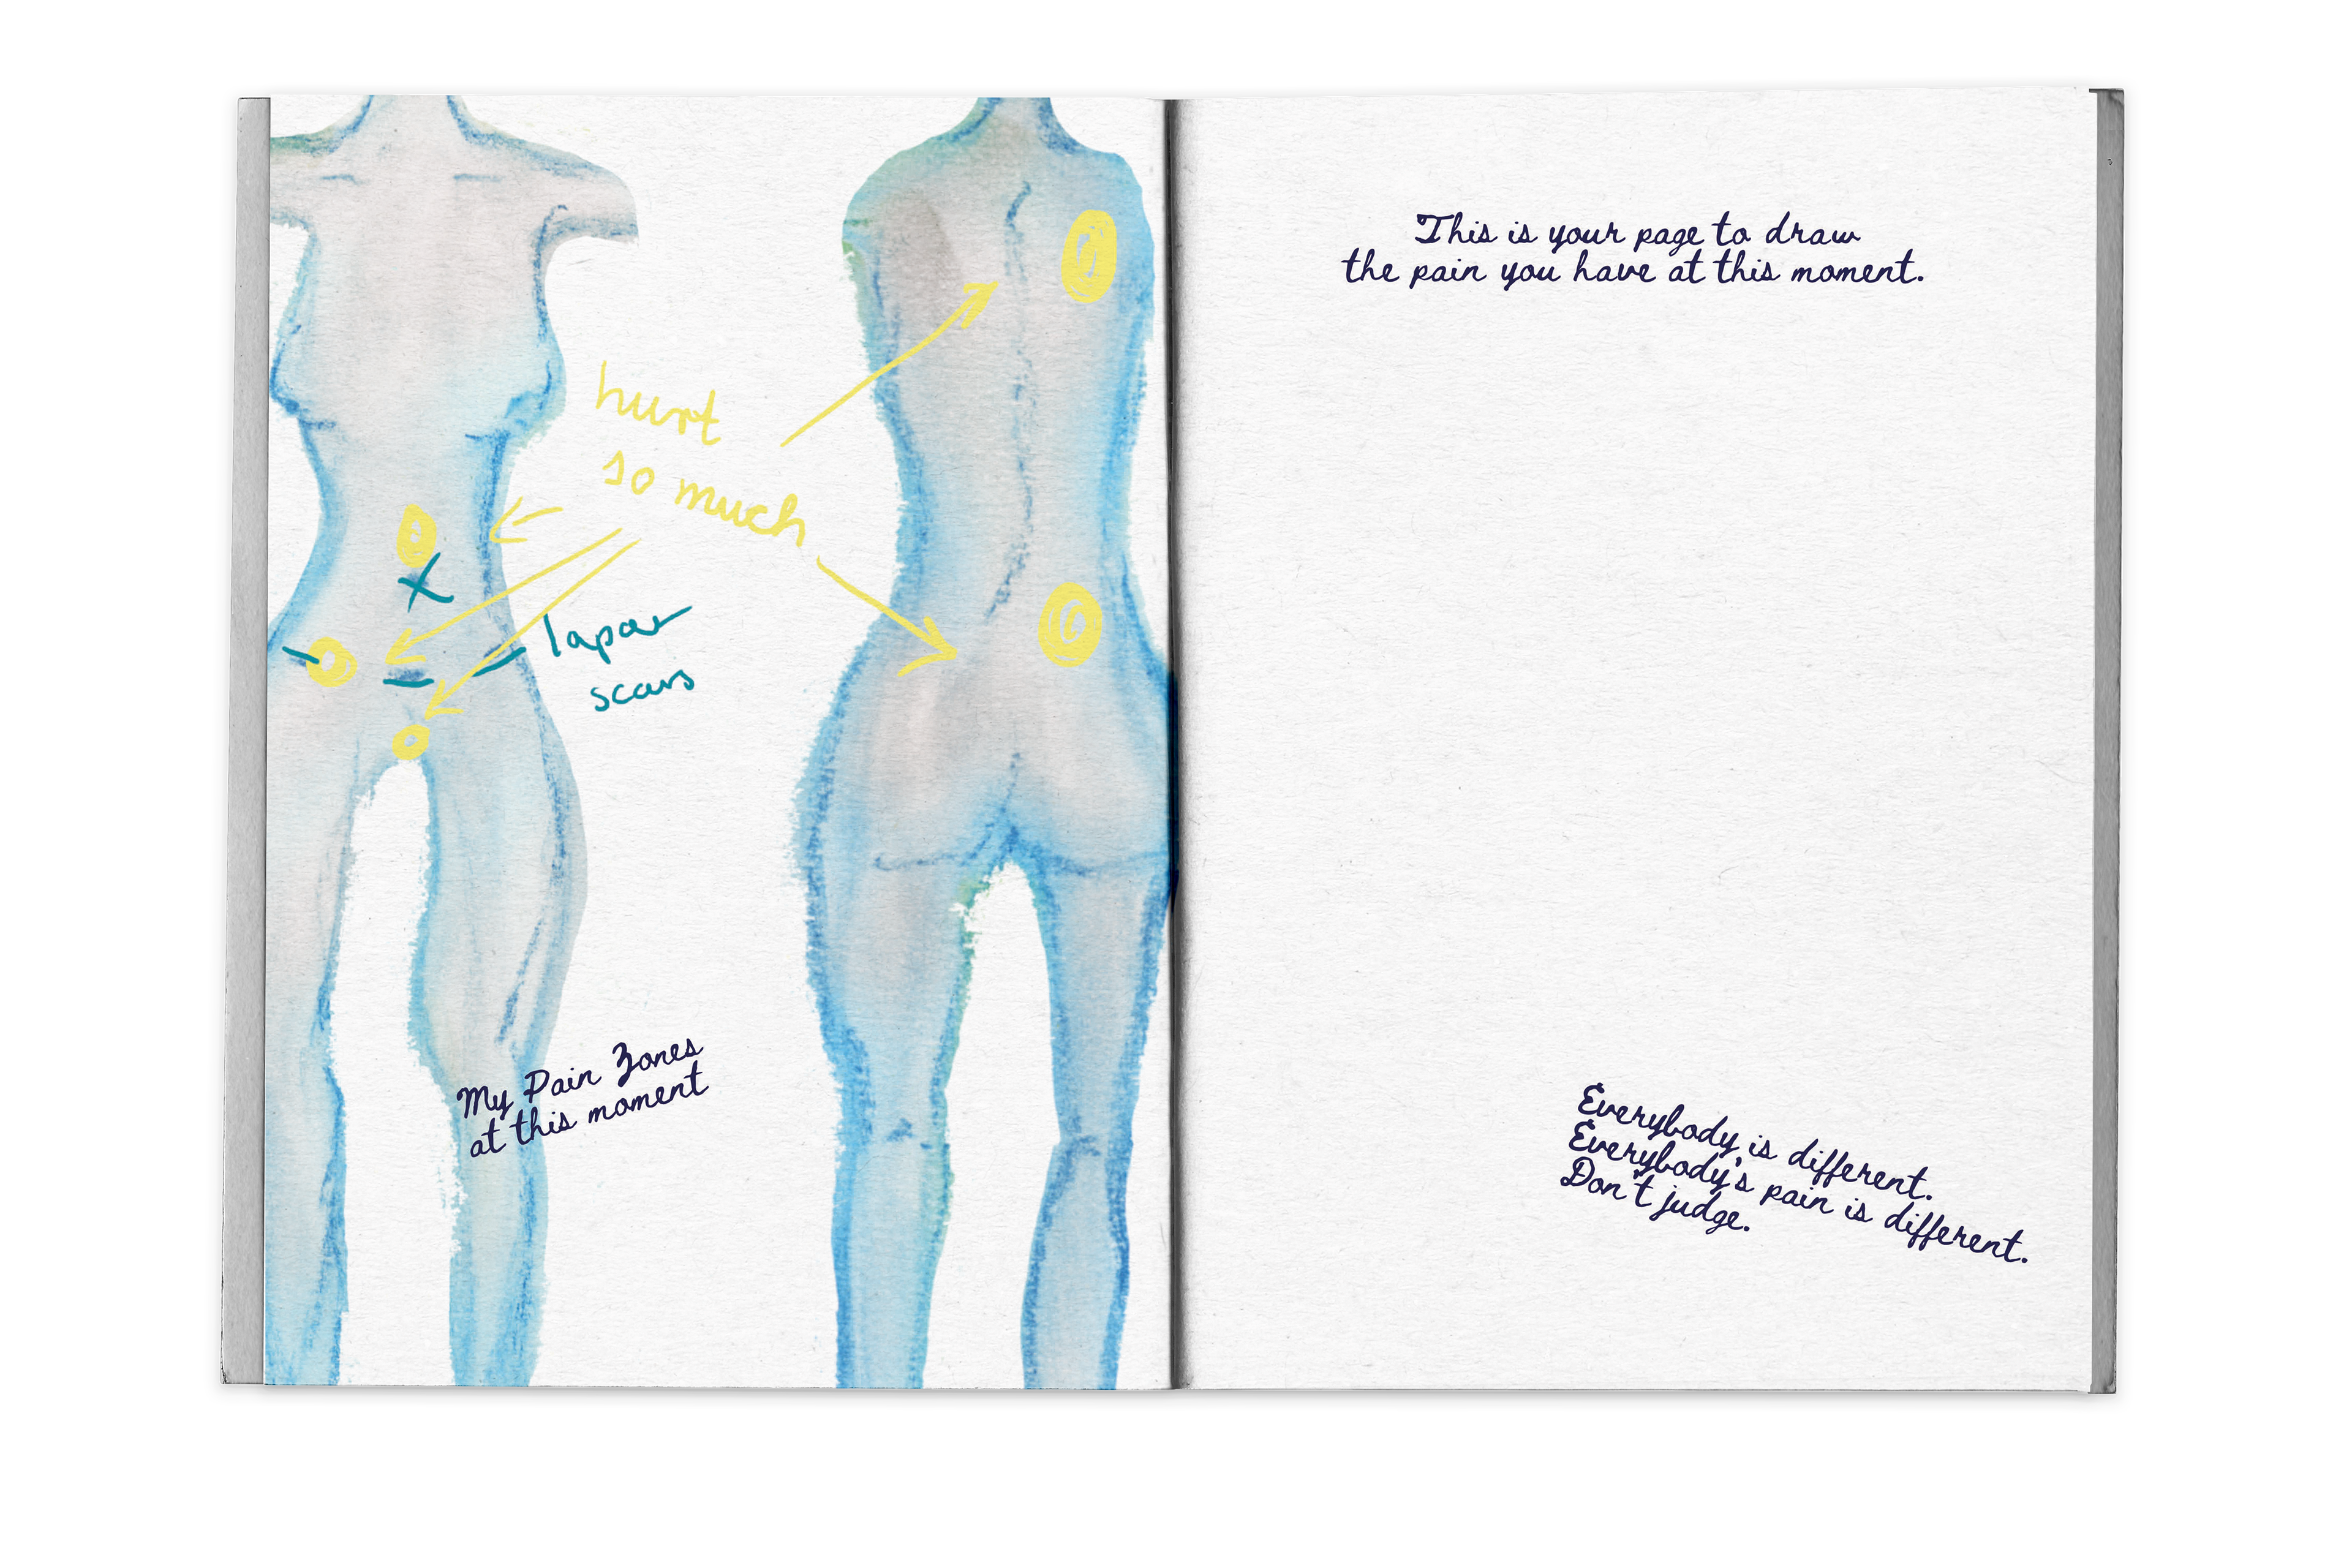 hurt
so much
lapar
scars
My Pain Zones
at this moment
This is your page to draw
the pain you have at this moment.
Everybody is different.
Everybody's pain is different.
Don't judge.